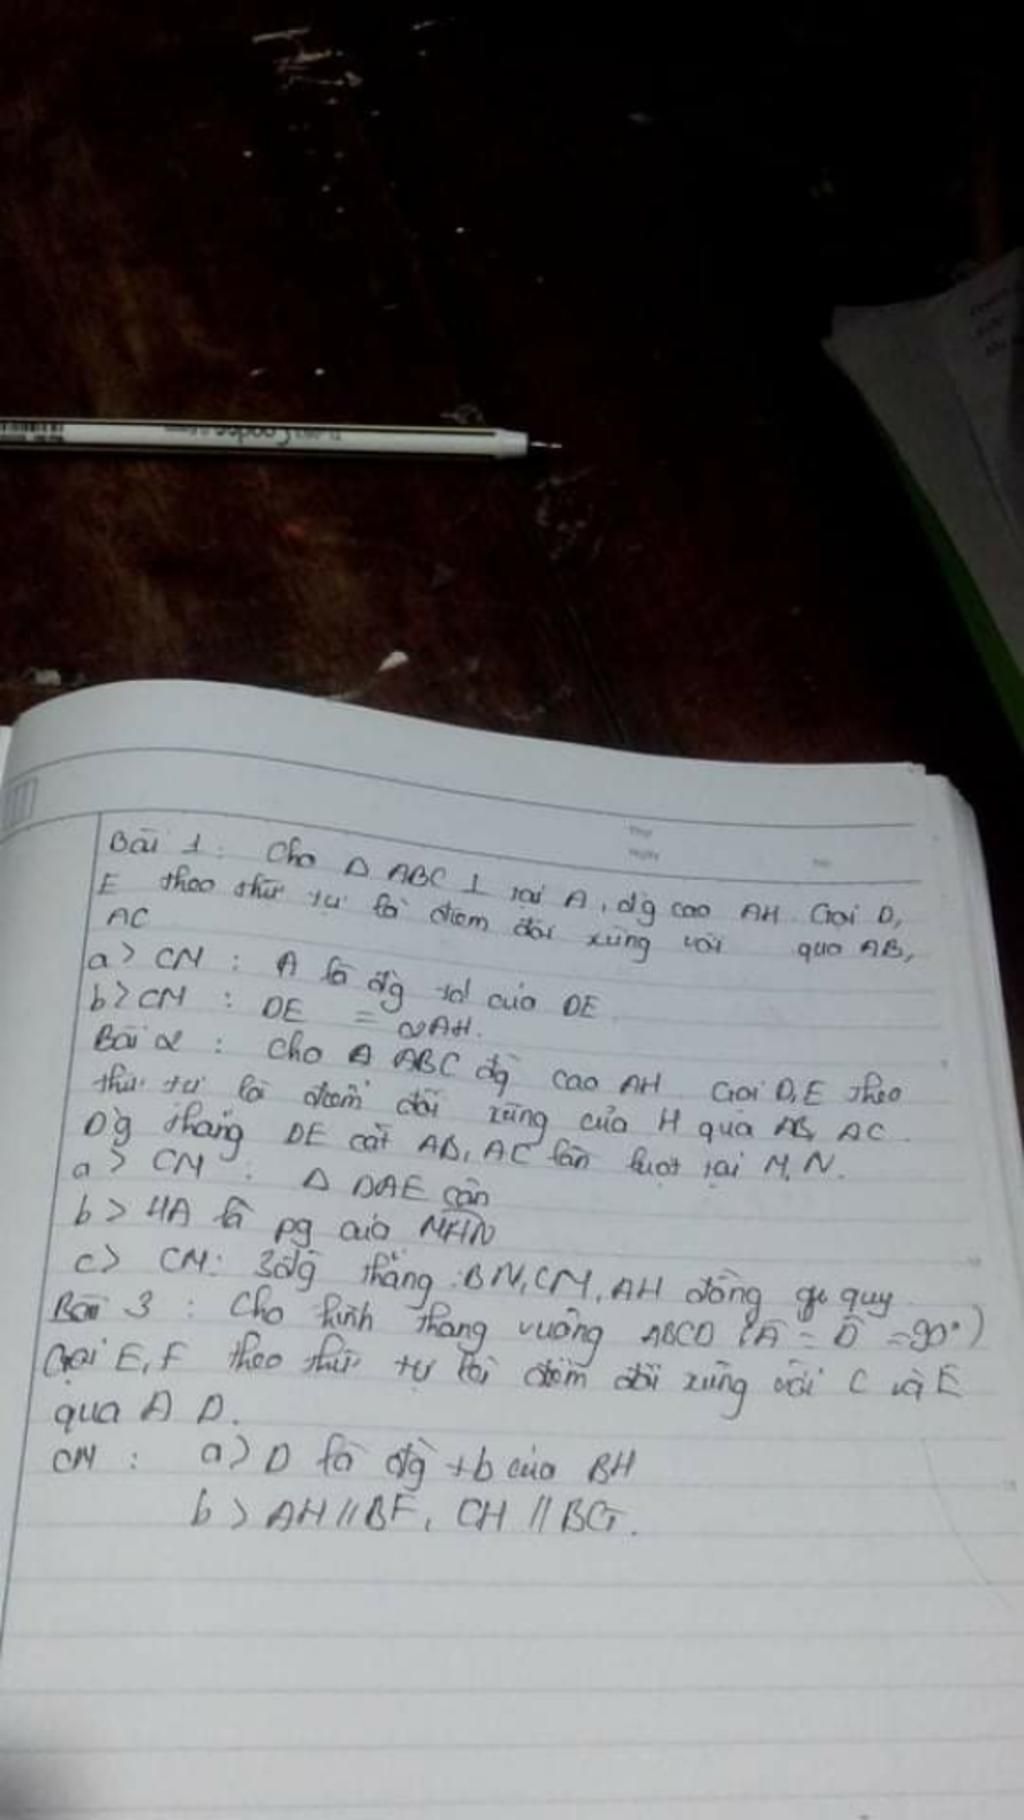 Bài 1: Cho Δ ABC ⊥ tại A, đg cao AH Gọi D,
E theo thứ tự là điểm đối xứng với qua AB,
AC
a> CM : A là đg td của DE
b> CM : DE = 2AH.
Bài 2 : Cho Δ ABC đg cao AH Gọi D, E theo
thứ tự là điểm đối xứng của H qua AB, AC.
Đg thẳng DE cắt AB, AC lần lượt tại M, N.
a> CM : Δ DAE cân
b> HA là pg của MHN
c> CM: 3 đg thẳng : BN, CM, AH đồng quy
Bài 3 : Cho hình thang vuông ABCD (A = D = 90°)
Gọi E, F theo thứ tự là điểm đối xứng với C và E
qua A D.
CM : a> D là đg +b của BH
b> AH // BF, CH // BG.